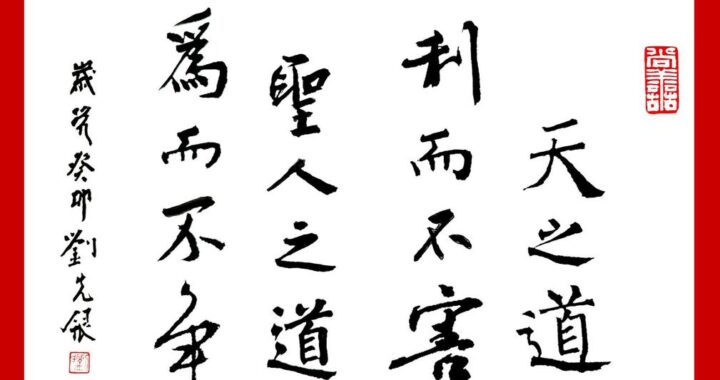 天之道
利而不害
聖人之道
爲而不争
歲癸卯劉先銀